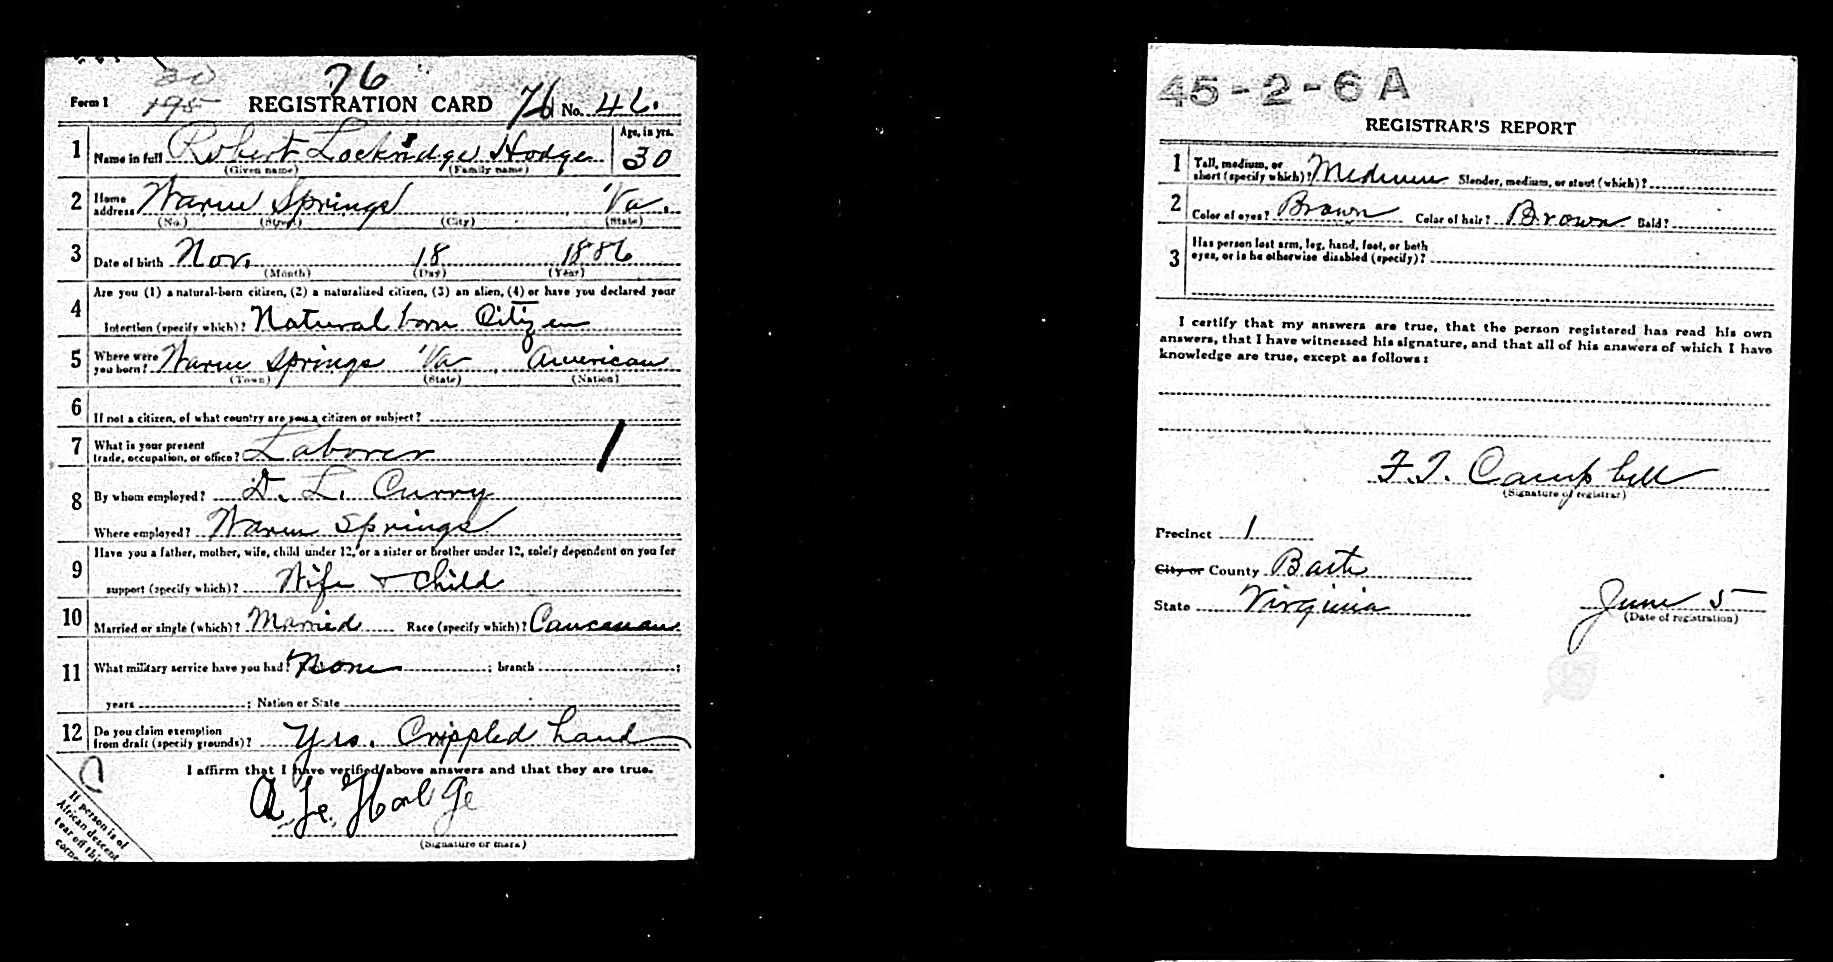 76
20
195
Form 1 REGISTRATION CARD 76 No. 46.
1 Name in full Robert Lockridge Hodge Age, in yrs. 30
(Given name) (Family name)
2 Home address Warm Springs Va.
(No.) (Street) (City) (State)
3 Date of birth Nov. 18 1886
(Month) (Day) (Year)
4 Are you (1) a natural-born citizen, (2) a naturalized citizen, (3) an alien, (4) or have you declared your
intention (specify which)? Natural born Citizen
5 Where were you born? Warm Springs Va American
(Town) (State) (Nation)
6 If not a citizen, of what country are you a citizen or subject?
7 What is your present
trade, occupation, or office? Laborer
8 By whom employed? D. L. Curry
Where employed? Warm Springs
9 Have you a father, mother, wife, child under 12, or a sister or brother under 12, solely dependent on you for
support (specify which)? Wife + child
10 Married or single (which)? Married Race (specify which)? Caucasian
11 What military service have you had? None ; branch ;
years ; Nation or State
12 Do you claim exemption
from draft (specify grounds)? Yes. Crippled hand
I affirm that I have verified above answers and that they are true.
R. L. Hodge
(Signature or mark)
If person is of
African descent
tear off this
corner
45-2-6 A
REGISTRAR'S REPORT
1 Tall, medium, or
short (specify which)? Medium Slender, medium, or stout (which)?
2 Color of eyes? Brown Color of hair? Brown Bald?
3 Has person lost arm, leg, hand, foot, or both
eyes, or is he otherwise disabled (specify)?
I certify that my answers are true, that the person registered has read his own
answers, that I have witnessed his signature, and that all of his answers of which I have
knowledge are true, except as follows:
F. T. Campbell
(Signature of registrar)
Precinct 1
City or County Bath
State Virginia June 5
(Date of registration)